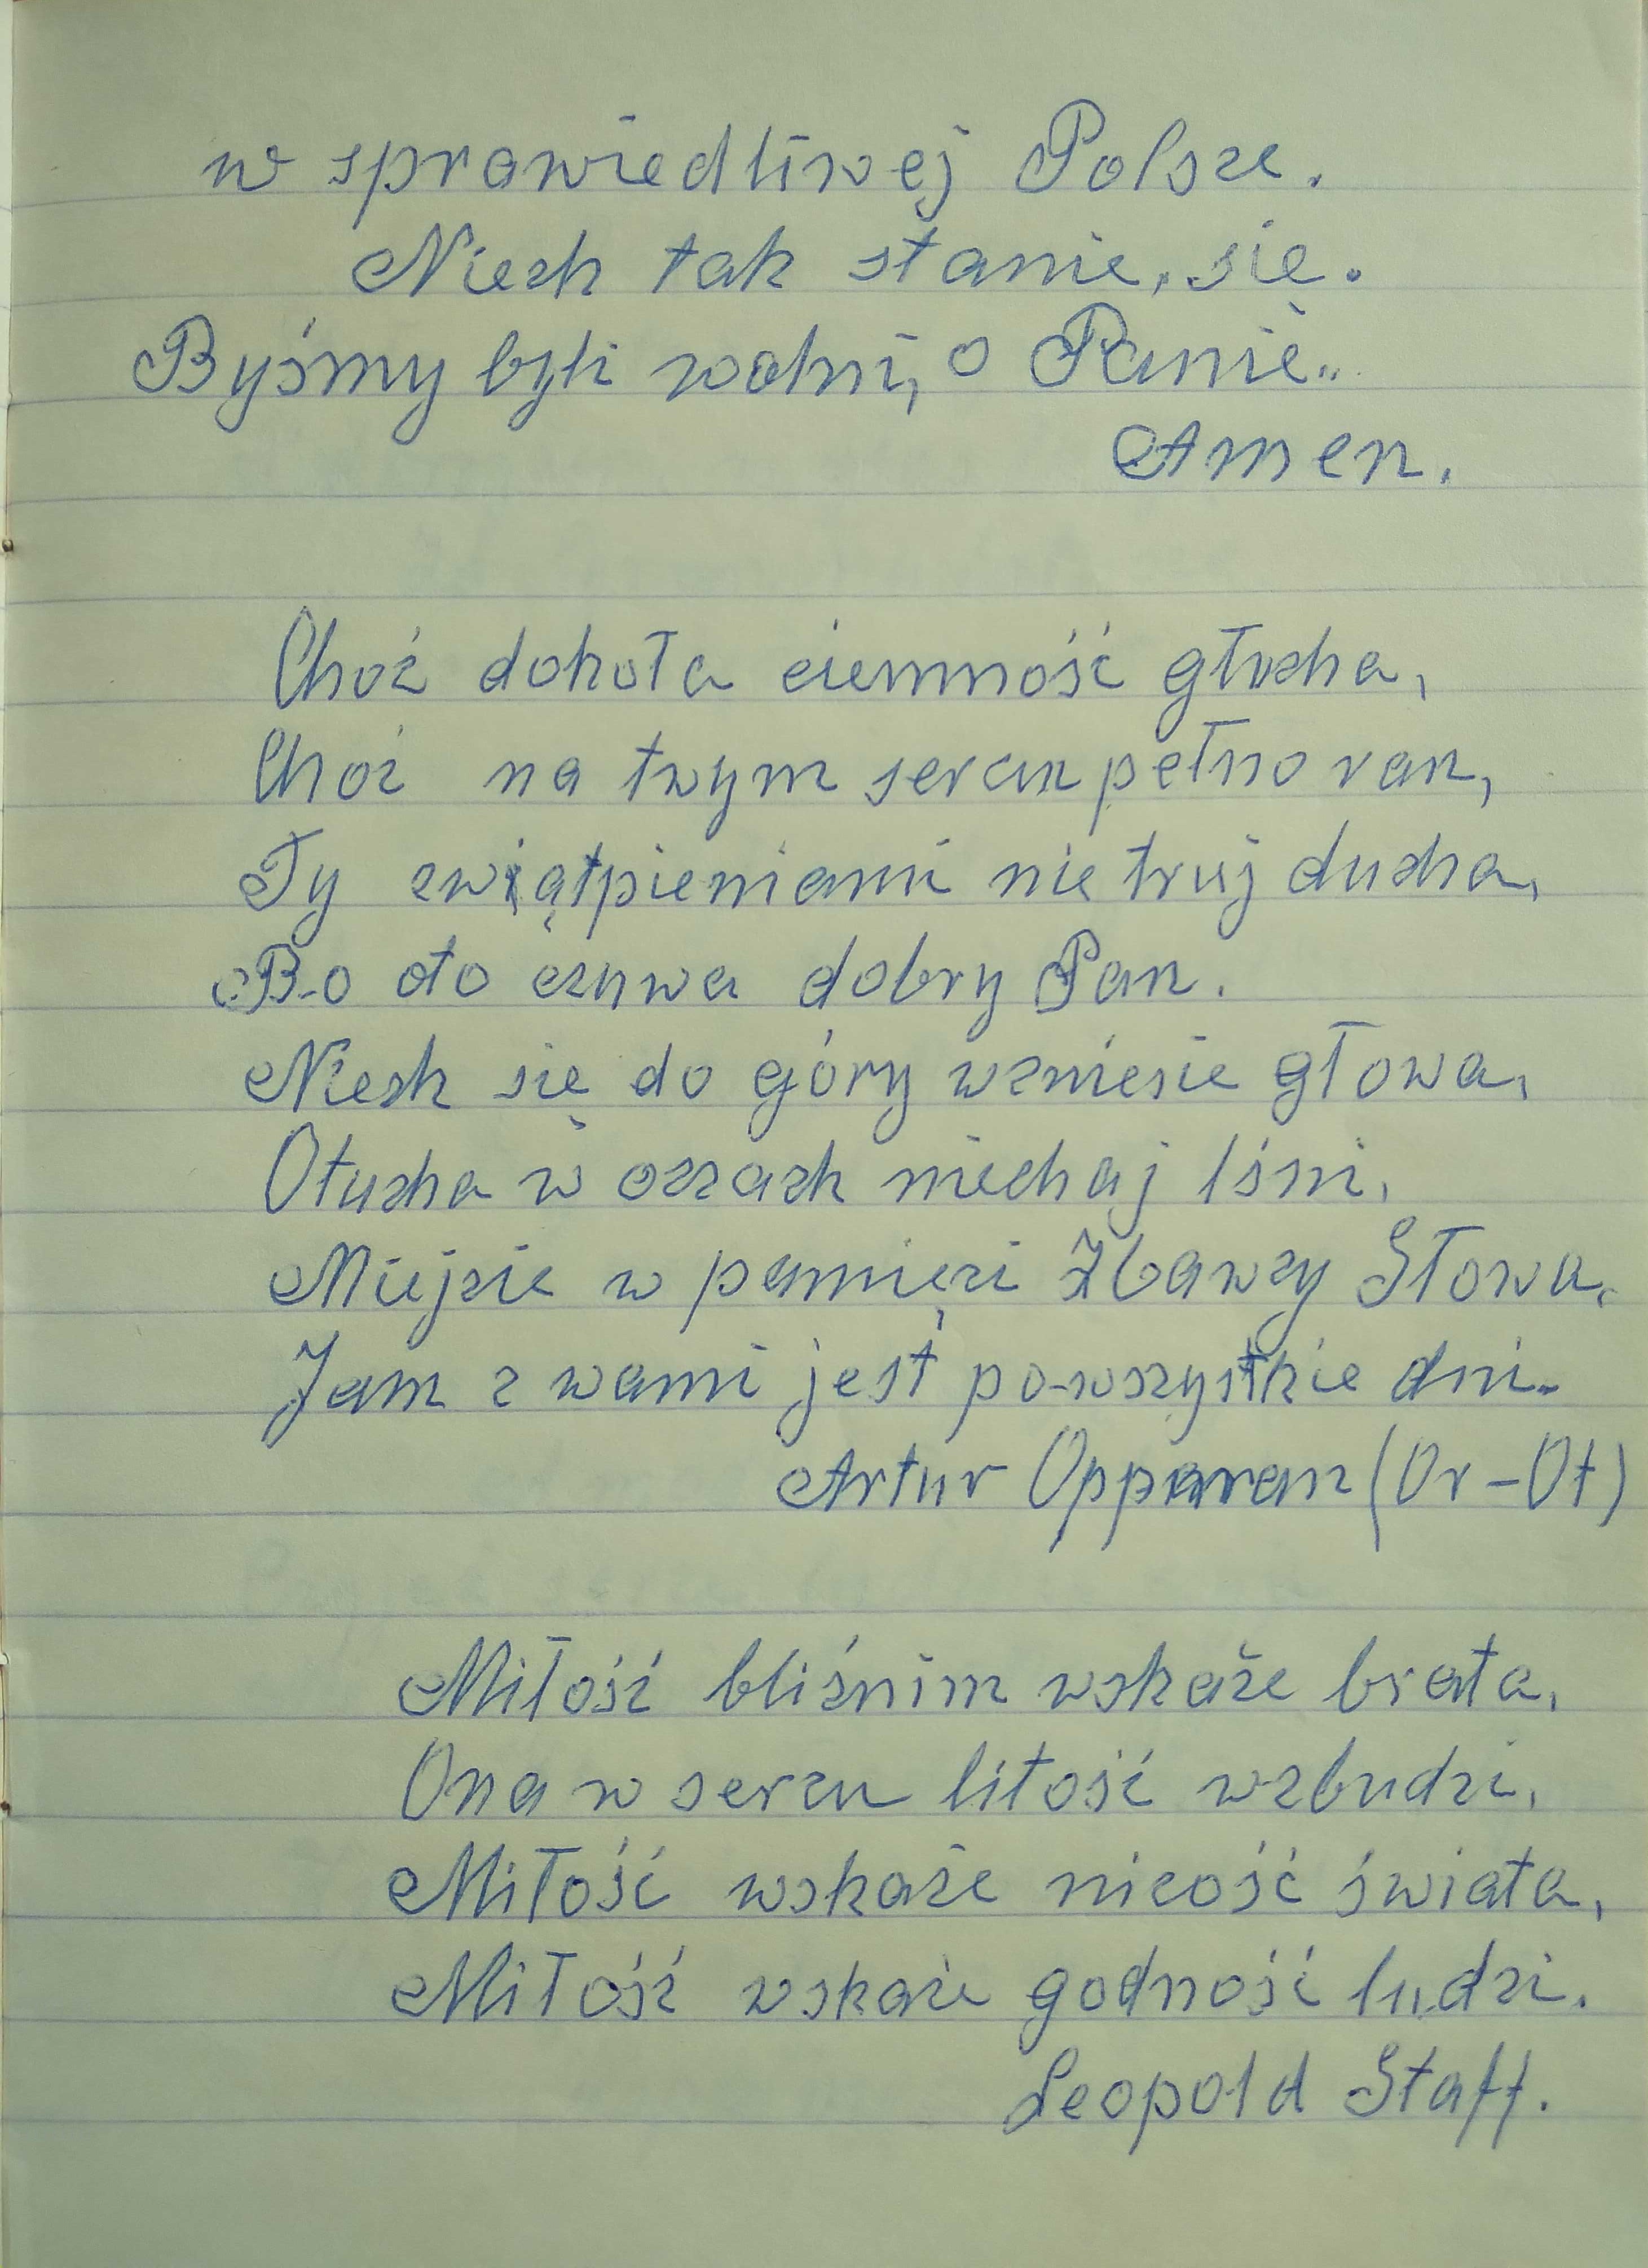 w sprawiedliwej Polsce.
Niech tak stanie, się.
Byśmy byli wolni, o Panie..
Amen.
Choć dokoła ciemność głucha,
Choć na twym sercu pełno ran,
Ty zwiątpieniami nie truj ducha,
Bo oto czuwa dobry Pan.
Niech się do góry wzniesie głowa,
Otucha w oczach niechaj lśni,
Miejcie w pamięci Zbawcy Słowa.
Jam z wami jest po wszystkie dni..
Artur Opparan (Or-Ot)
Miłość bliźnim wskaże brata,
Ona w sercu litość wzbudzi,
Miłość wskaże nicość świata,
Miłość wskaże godność ludzi.
Leopold Staff.